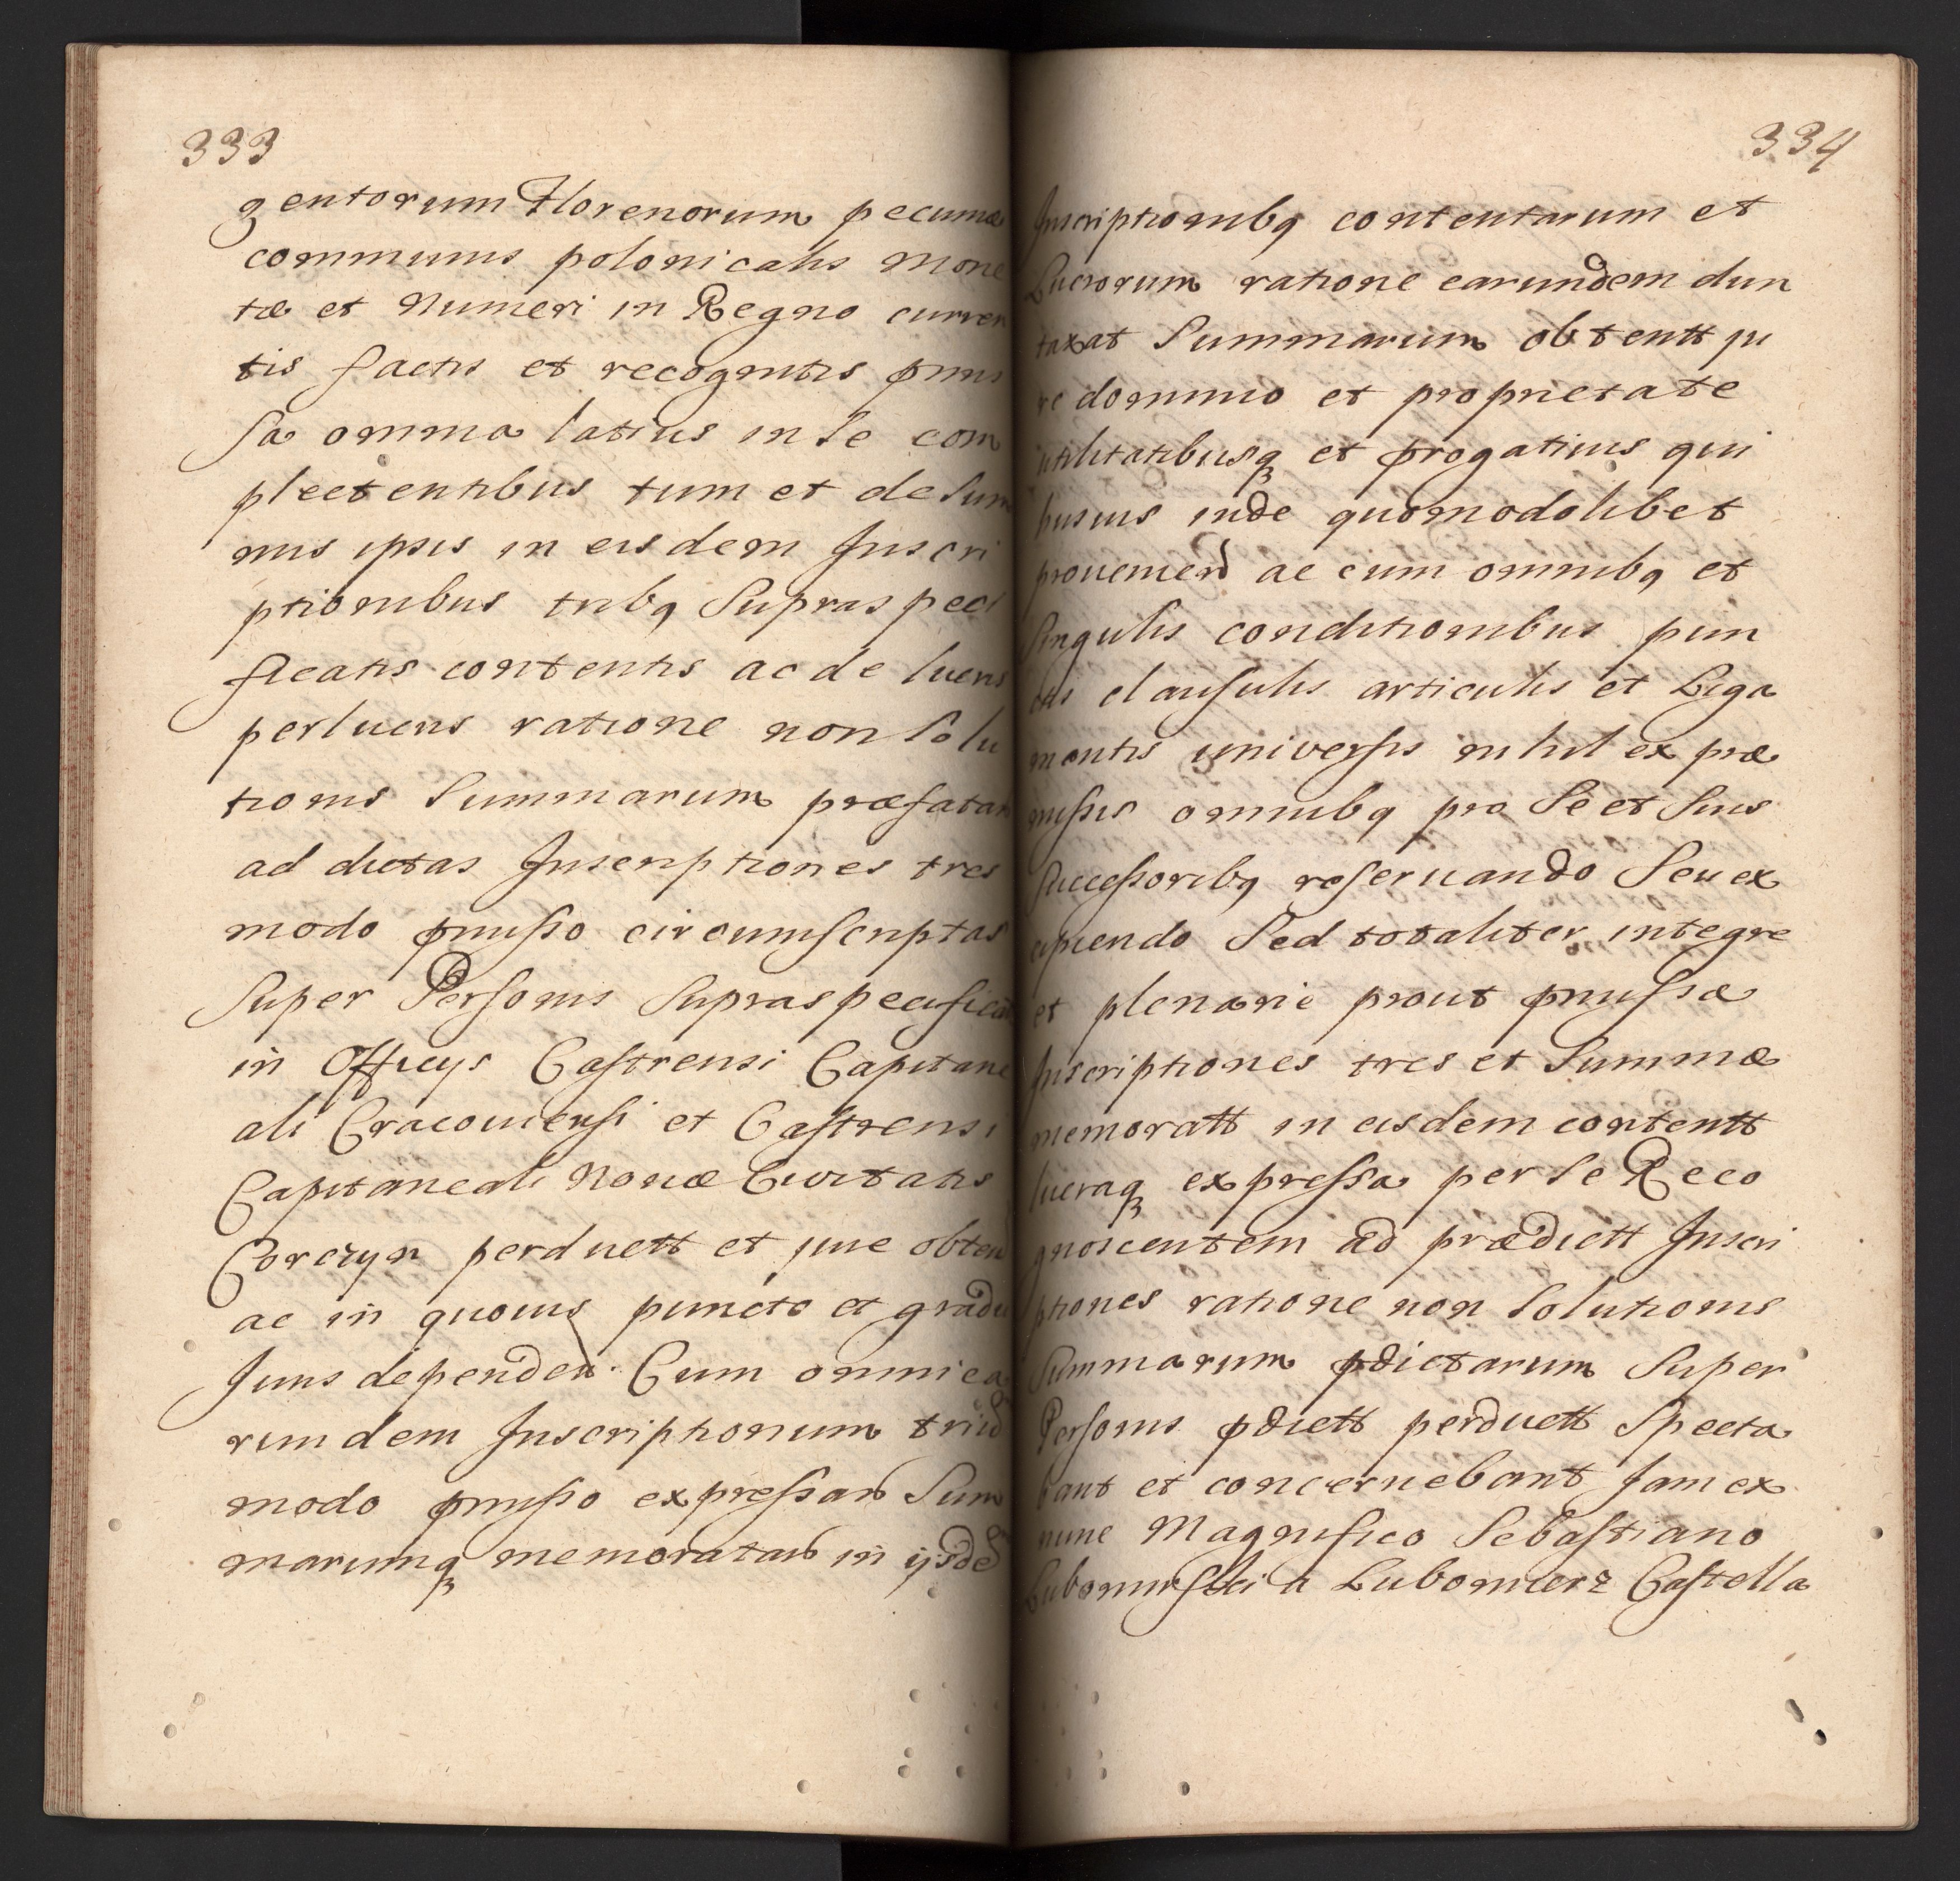 333
gentorum Florenorum pecuniæ
communis polonicalis mone
tæ et Numeri in Regno curren
tis factis et recognitis pmis
sa omnia latius in se com
plectentibus tum et de Sum
mis ipsis in eisdem Inscri
ptionibus tribq Supraspeci
ficatis contentis ac de lucris
perlucris ratione non Solu
tionis Summarum præfatar
ad dictas Inscriptiones tres
modo pmisso circumscriptas
Super Personis Supraspecificat
in Officys Castrensi Capitane
ali Cracoviensi et Castrensi
Capitaneali Novæ Civitatis
Corczyn perductt et jure obten
ac in quovis puncto et gradu
Juris dependen. Cum omni ea
rumdem Inscriptionum trium
modo pmisso expressar Sum
marumq memoratar in ijsdē
334
Inscriptionibq contentarum et
Lucrorum ratione earundem dun
taxat Summarum obtentt ju
re dominio et proprietate
utilitatibusq et progativis qui
busvis inde quomodolibet
provenien ac cum omnibq et
Singulis conditionibus pun
ctis clausulis articulis et Liga
mentis universis nihil ex præ
missis omnibq pro Se et Suis
Successoribq reservando Seu ex
cipiendo Sed totaliter integre
et plenarie prout pmissæ
Inscriptiones tres et Summæ
memoratt in eisdem contentt
lucraq expressa per se Reco
gnoscentem ad prædictt Inscri
ptiones ratione non Solutionis
Summarum pdictarum Super
Personis pdictt perductt Specta
bant et concernebant Jam ex
nunc Magnifico Sebastiano
Lubomirski a Lubomierz Castella